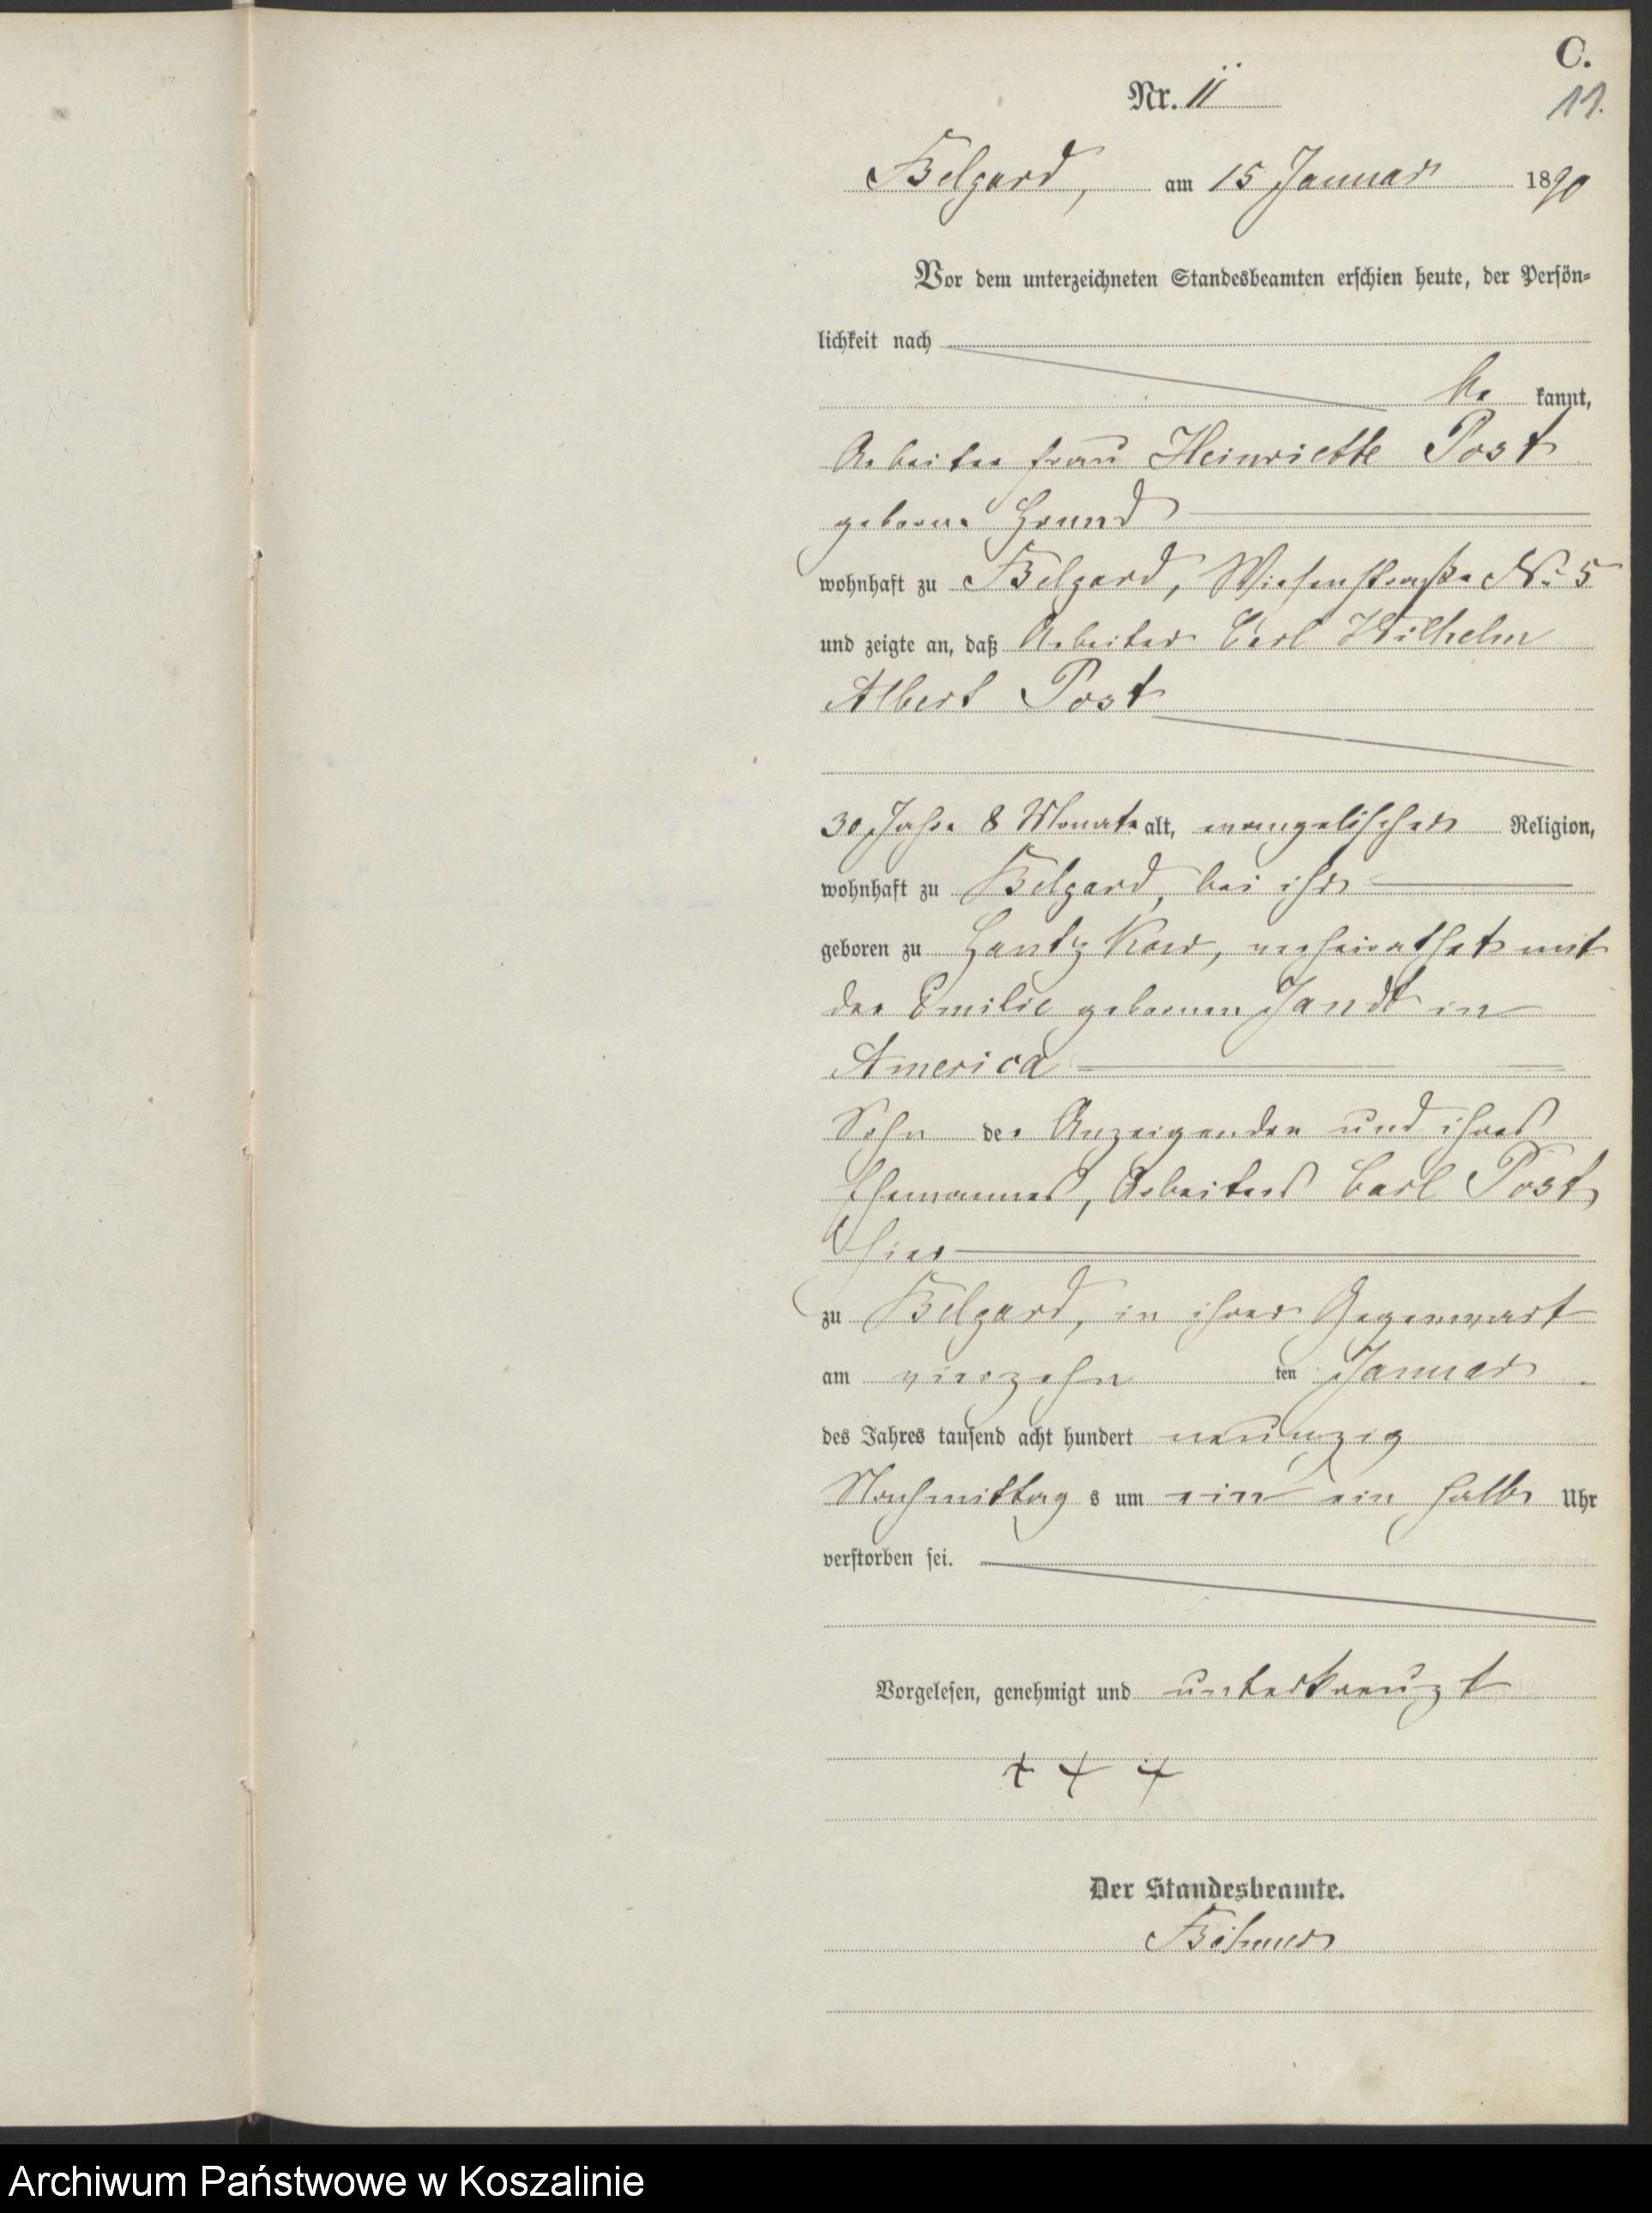 C.
Nr. 11
11.
Belgard, am 15 Januar 1890
Vor dem unterzeichneten Standesbeamten erschien heute, der Persön-
lichkeit nach
be kannt,
Arbeiterfrau Heinriette Post
geborne Grund
wohnhaft zu Belgard, Wiesenstraße No 5
und zeigte an, daß Arbeiter Carl Wilhelm
Albert Post
30 Jahre 8 Monate alt, evangelischer Religion,
wohnhaft zu Belgard, bei ihr
geboren zu verheirathet mit
der Emilie gebornen Jandt in
America
Sohn der Anzeigenden und ihres
Ehemannes, Arbeiters Carl Post,
hier
zu Belgard, in ihrer Gegenwart
am vierzehn ten Januar
des Jahres tausend acht hundert neunzig
Nachmittag s um ein ein halb Uhr
verstorben sei.
Vorgelesen, genehmigt und unterkreuzt
+ + +
Der Standesbeamte.
Böhmer
Archiwum Państwowe w Koszalinie